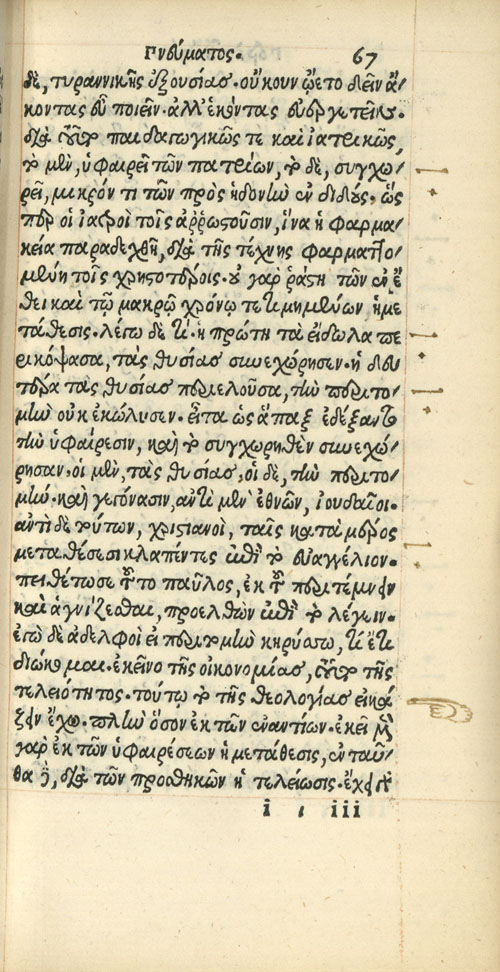 Πνεύματος. 67
δὲ, τυραννικῆς ἐξουσίας. οὔκουν ᾤετο δεῖν ἄ-
κοντας εὖ ποιεῖν. ἀλλ' ἑκόντας εὐεργετεῖν.
διὰ τοῦτο παιδαγωγικῶς τε καὶ ἰατρικῶς,
τὸ μὲν, ὑφαιρεῖ τῶν πατρίων, τὸ δὲ, συγχω-
ρεῖ, μικρόν τι τῶν πρὸς ἡδονὴν ἐνδιδούς. ὥς
περ οἱ ἰατροὶ τοῖς ἀῤῥωστοῦσιν, ἵνα ἡ φαρμα-
κεία παραδεχθῇ, διὰ τῆς τέχνης φαρματτο-
μένη τοῖς χρηστοτέροις. οὐ γὰρ ῥάστη τῶν ἐν ἔ-
θει καὶ τῷ μακρῷ χρόνῳ τετιμημένων, ἡ με
τάθεσις. λέγω δὲ τί. ἡ πρώτη τὰ εἴδωλα πε
ρικόψασα, τὰς θυσίας συνεχώρησεν. ἡ δευ
τέρα τὰς θυσίας περιελοῦσα, τὴν περιτο-
μὴν οὐκ ἐκώλυσεν. εἶτα ὡς ἅπαξ ἐδέξαντο
τὴν ὑφαίρεσιν, καὶ τὸ συγχωρηθὲν συνεχώ-
ρησαν. οἱ μὲν, τὰς θυσίας, οἱ δὲ, τὴν περιτο-
μήν. καὶ γεγόνασιν, ἀντὶ μὲν ἐθνῶν, ἰουδαῖοι.
ἀντὶ δὲ τούτων, χριστιανοὶ, ταῖς κατὰ μέρος
μεταθέσεσι κλαπέντες ἐπὶ τὸ εὐαγγέλιον.
πειθέτω σε τοῦτο παῦλος, ἐκ τοῦ περιτέμνειν
καὶ ἁγνίζεσθαι, προελθὼν ἐπὶ τὸ λέγειν.
ἐγὼ δὲ ἀδελφοὶ εἰ περιτομὴν κηρύσσω, τί ἔτι
διώκομαι. ἐκεῖνο τῆς οἰκονομίας, τοῦτο τῆς
τελειότητος. τούτῳ τὸ τῆς θεολογίας εἰκά
ζειν ἔχω. πλὴν ὅσον ἐκ τῶν ἐναντίων. ἐκεῖ μὲν
γὰρ ἐκ τῶν ὑφαιρέσεων ἡ μετάθεσις, ἐνταῦ-
θα δὲ, διὰ τῶν προσθηκῶν ἡ τελείωσις. ἔχει γὰρ
i iii